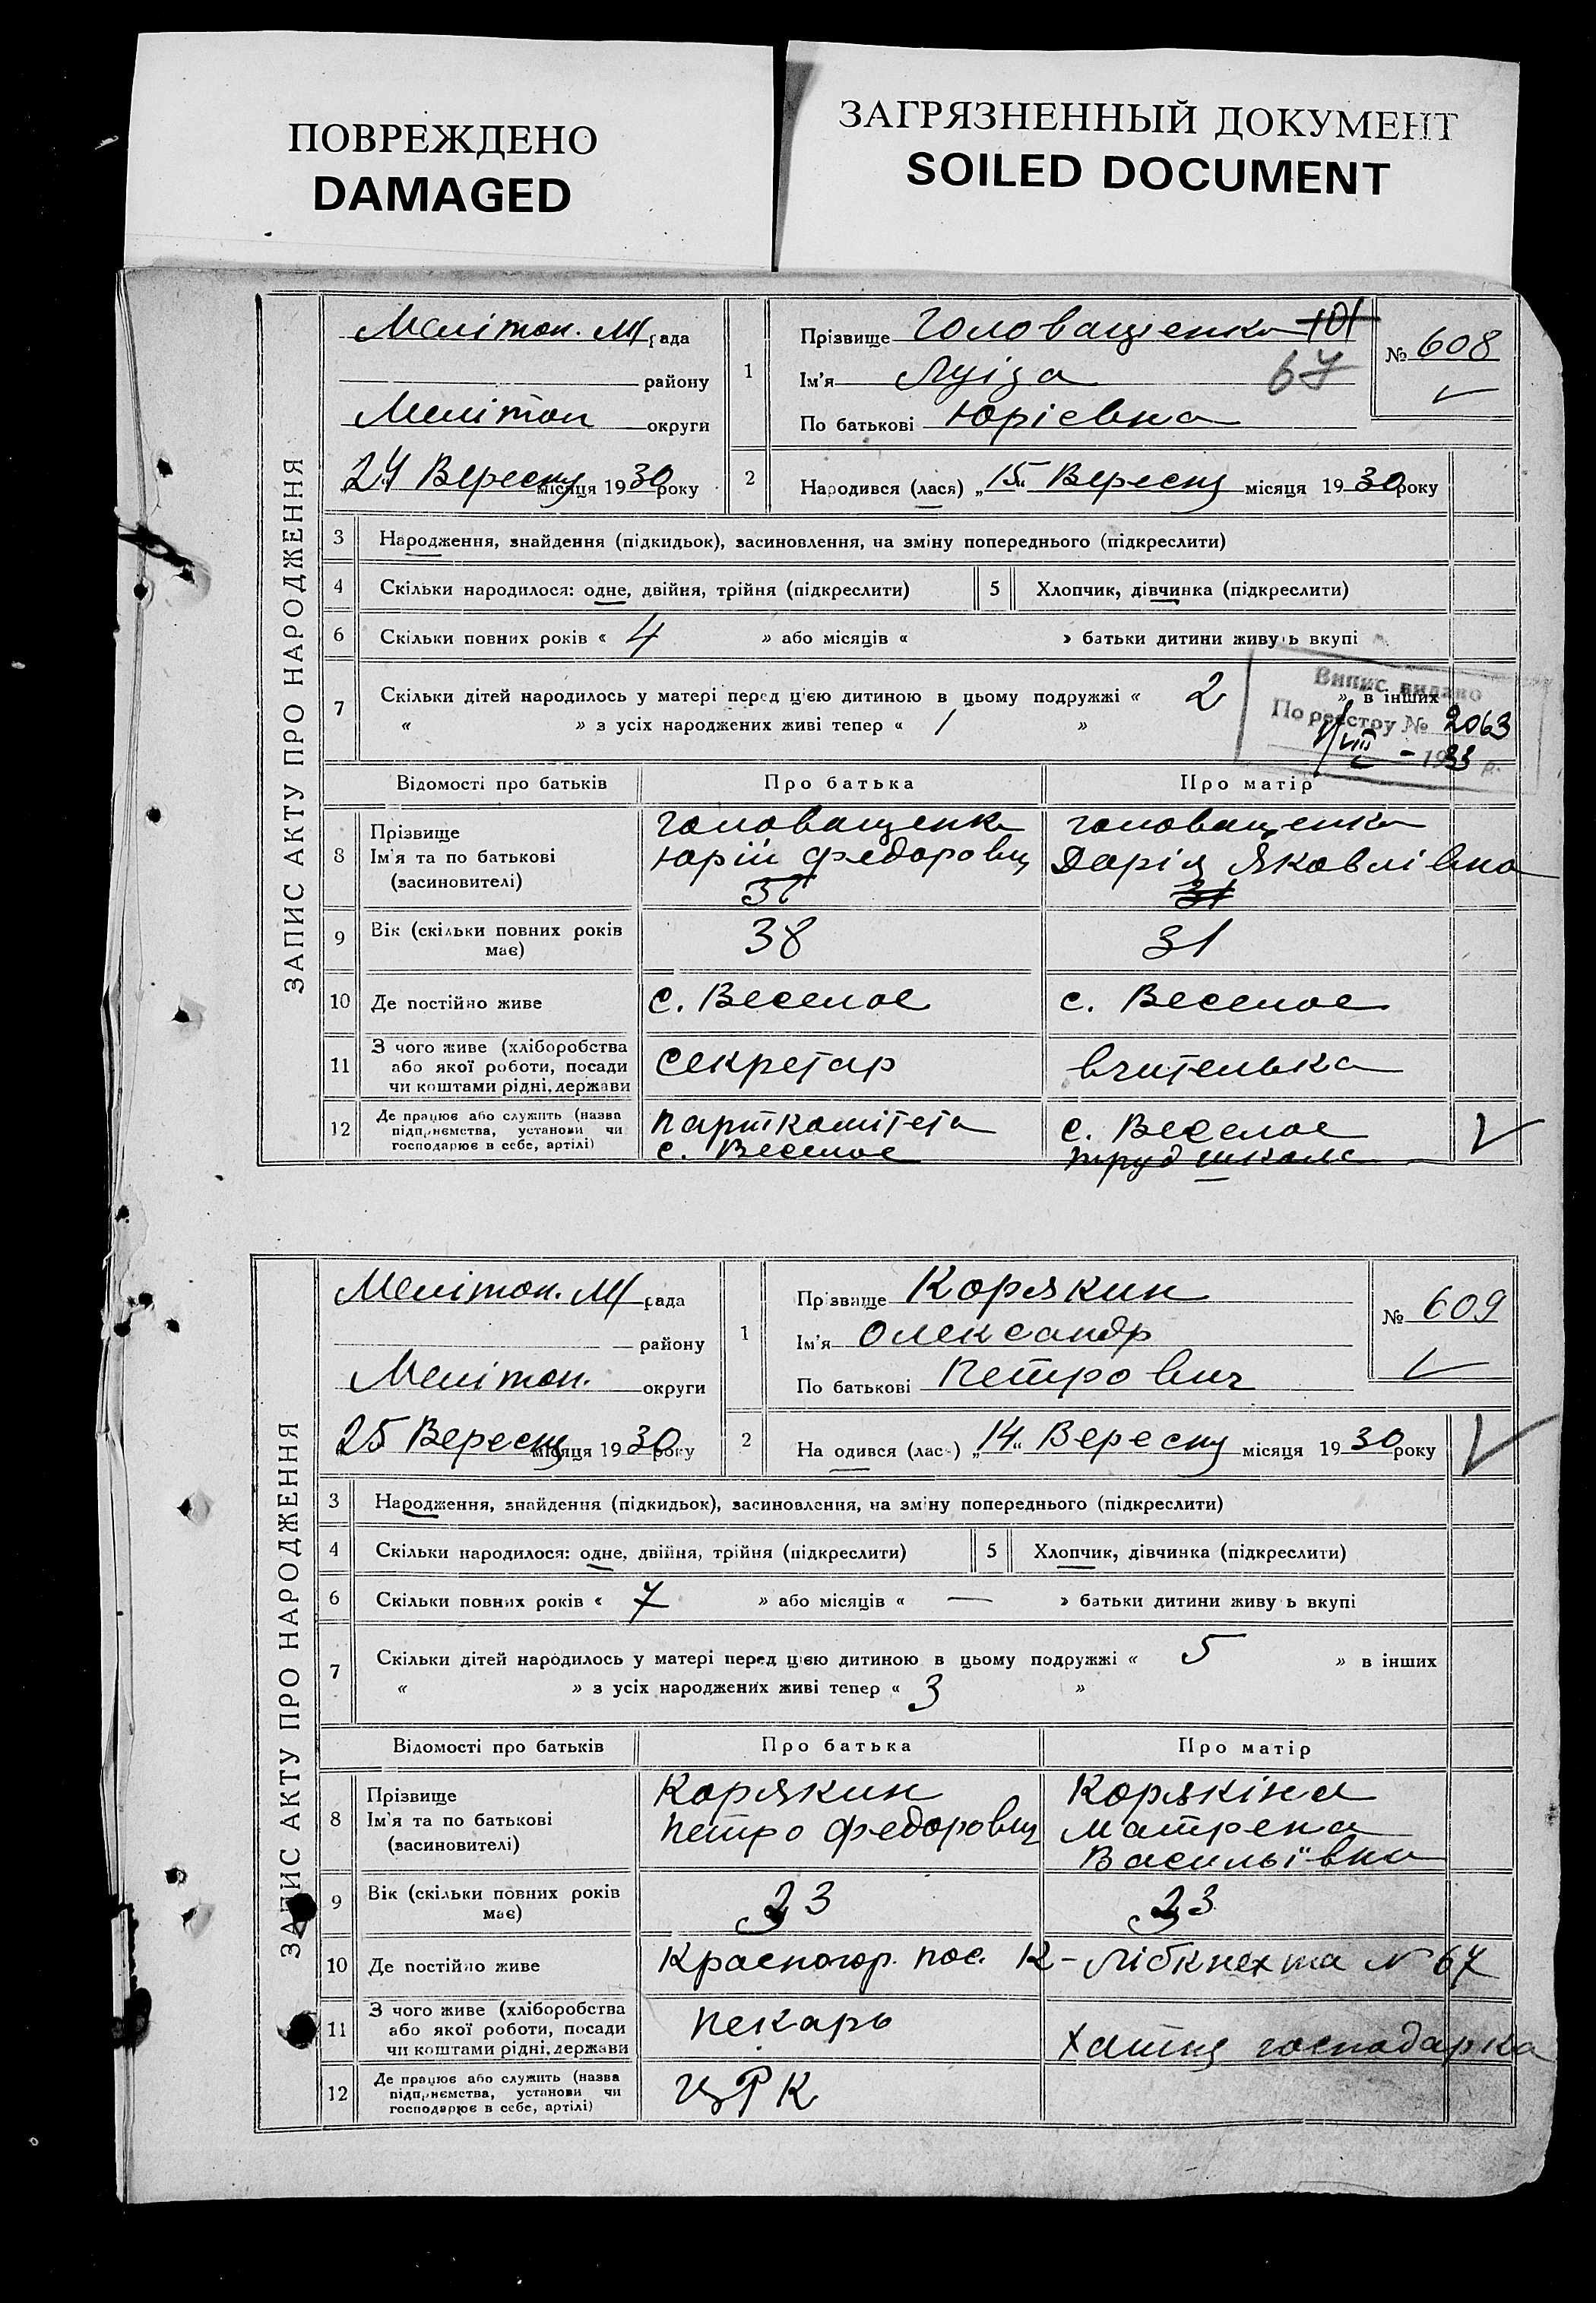 ПОВРЕЖДЕНО
DAMAGED
ЗАГРЯЗНЕННЫЙ ДОКУМЕНТ
SOILED DOCUMENT
ЗАПИС АКТУ ПРО НАРОДЖЕННЯ
Мелітоп. М/рада
району
Мелітоп округи
24 Вересня місяця 1930 року
1
Прізвище Головащенко 101
Ім'я Луіза 67
По батькові Юріевна
№ 608
2
Народився (лася) „15“ Вересня місяця 1930 року
3 Народження, знайдення (підкидьок), засиновлення, на зміну попереднього (підкреслити)
4 Скільки народилося: одне, двійня, трійня (підкреслити)
5 Хлопчик, дівчинка (підкреслити)
6 Скільки повних років « 4 » або місяців « » батьки дитини живуть вкупі
7 Скільки дітей народилось у матері перед цією дитиною в цьому подружжі « 2 » в інших
« » з усіх народжених живі тепер « 1 »
Випис видано
По реєстру № 2063
1/VIII - 1933 р.
Відомості про батьків Про батька Про матір
8 Прізвище
Ім'я та по батькові
(засиновителі)
Головащенко
Юрій Федорович
Головащенко
Дарія Яковлівна
31
9 Вік (скільки повних років
має)
38
31
10 Де постійно живе
с. Веселое
с. Веселое
11 З чого живе (хліборобства
або якої роботи, посади
чи коштами рідні, держави
секретар
вчителька
12 Де працює або служить (назва
підприємства, установи чи
господарює в себе, артілі)
парткомітета
с. Веселое
с. Веселое
труд школа
ЗАПИС АКТУ ПРО НАРОДЖЕННЯ
Мелітоп. М/рада
району
Мелітоп. округи
25 Вересня місяця 1930 року
1
Прізвище Корякин
Ім'я Олександр
По батькові Петрович
№ 609
2
Народився (лась) „14“ Вересня місяця 1930 року
3 Народження, знайдення (підкидьок), засиновлення, на зміну попереднього (підкреслити)
4 Скільки народилося: одне, двійня, трійня (підкреслити)
5 Хлопчик, дівчинка (підкреслити)
6 Скільки повних років « 7 » або місяців « — » батьки дитини живуть вкупі
7 Скільки дітей народилось у матері перед цією дитиною в цьому подружжі « 5 » в інших
« » з усіх народжених живі тепер « 3 »
Відомості про батьків Про батька Про матір
8 Прізвище
Ім'я та по батькові
(засиновителі)
Корякин
Петро Федорович
Корякіна
Матрена
Васильївна
9 Вік (скільки повних років
має)
10 Де постійно живе
Красногор. пос. К-Лібкнехта № 67
11 З чого живе (хліборобства
або якої роботи, посади
чи коштами рідні, держави
пекарь
Хатня господарка
12 Де працює або служить (назва
підприємства, установи чи
господарює в себе, артілі)
ЦРК